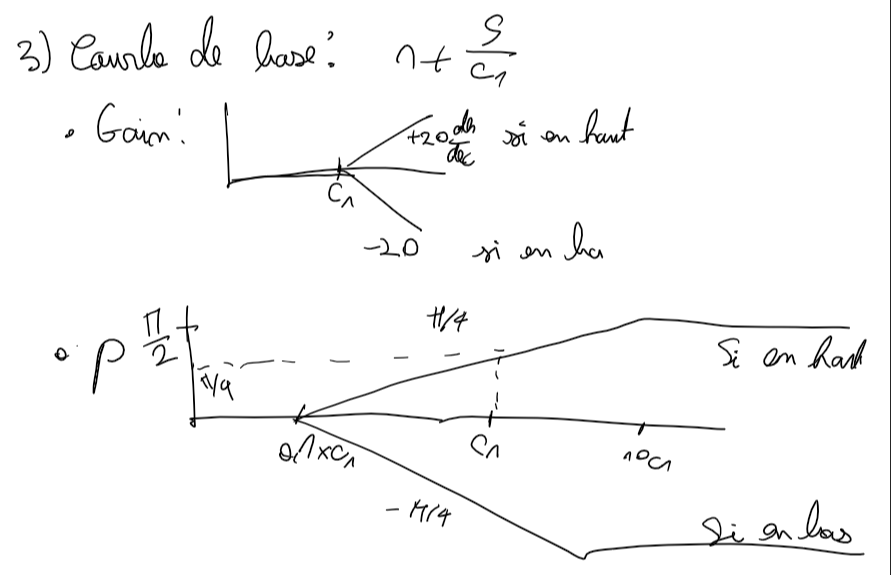 3) Courbe de base : 1 + S/C1
• Gain :
+20 db/dec si en haut
C1
-20 si en ba
• P π/2
π/4
π/4
Si en haut
0,1×C1
C1
10C1
-π/4
Si en bas